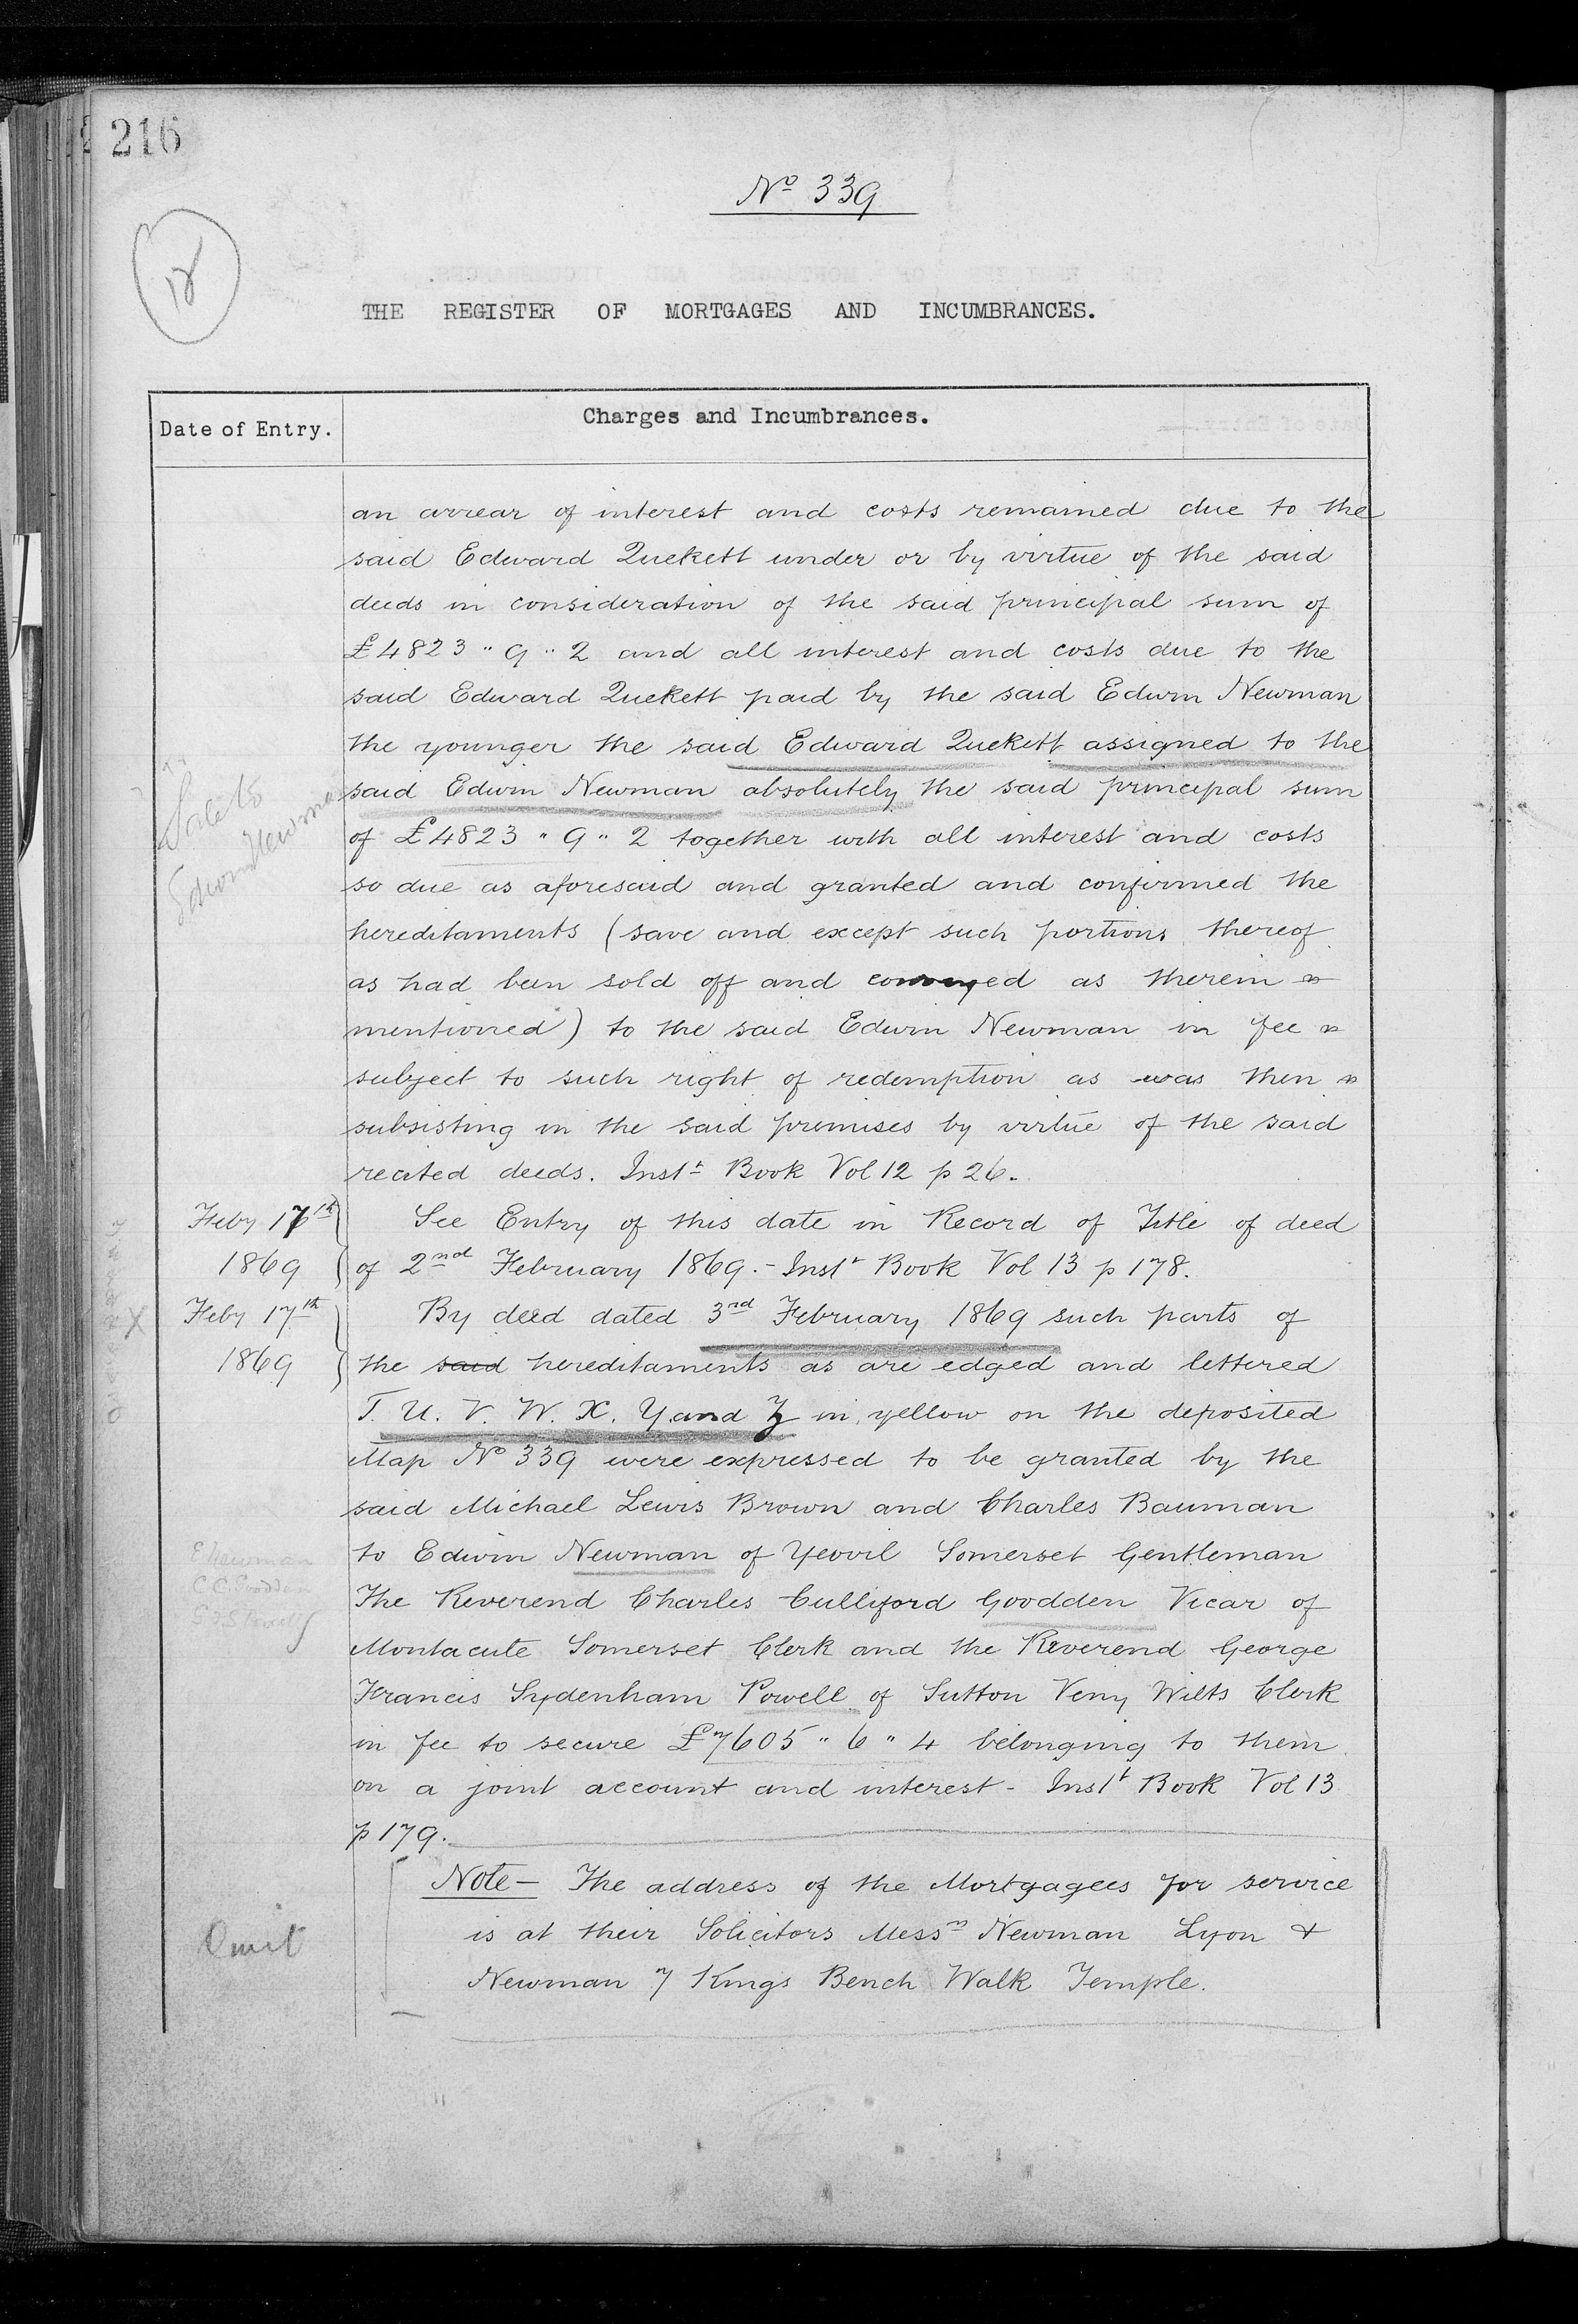 216
Nº 339
18
THE REGISTER OF MORTGAGES AND INCUMBRANCES.
Date of Entry.
Charges and Incumbrances.
an arrear of interest and costs remained due to the
said Edward Quekett under or by virtue of the said
deeds in consideration of the said principal sum of
£4823 " 9 " 2 and all interest and costs due to the
said Edward Quekett paid by the said Edwin Newman
the younger the said Edward Quekett assigned to the
said Edwin Newman absolutely the said principal sum
of £4823 " 9 " 2 together with all interest and costs
so due as aforesaid and granted and confirmed the
hereditaments (save and except such portions thereof
as had been sold off and conveyed as therein
mentioned) to the said Edwin Newman in fee
subject to such right of redemption as was then
subsisting in the said premises by virtue of the said
recited deeds. Instt Book Vol 12 p 26.
Sale to
Edwin Newman
Feby 17th
1869
See Entry of this date in Record of Title of deed
of 2nd February 1869. - Instt Book Vol 13 p 178.
X Feby 17th
1869
By deed dated 3rd February 1869 such parts of
the said hereditaments as are edged and lettered
T. U. V. W. X. Y. and Z in yellow on the deposited
Map Nº 339 were expressed to be granted by the
said Michael Lewis Brown and Charles Bauman
to Edwin Newman of Yeovil Somerset Gentleman
The Reverend Charles Culliford Goodden Vicar of
Montacute Somerset Clerk and the Reverend George
Francis Sydenham Powell of Sutton Veny Wilts Clerk
in fee to secure £7605 " 6 " 4 belonging to them
on a joint account and interest - Instt Book Vol 13
p 179.
E Newman
C. C. Goodden
Note - The address of the Mortgagees for service
is at their Solicitors Messrs Newman Lyon &
Newman 7 Kings Bench Walk Temple.
Omit